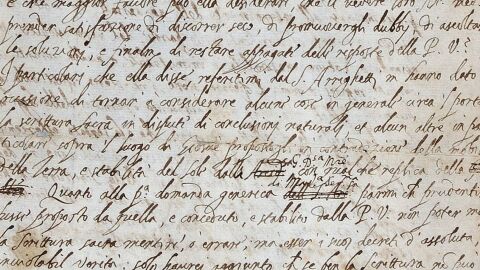 e che maggior favore può ella desiderare, che il vedere loro
prender satisfazione di discorrer seco, di promuovergli dubbi, di ascolta
le soluzioni, e finalm. di restare appagate dell risposte della P. V.ª
I particolari, che ella disse referitimi dal S. Arrighetti, m hanno dato
occasione di tornar' a considerare alcune cose in generale circa 'l porta
la scrittura sacra in dispute di conclusioni naturali, et alcun altre in pa
ticolari sopra 'l luogo di Giosue proposto in contradizione della
della Terra, e stabilità del sole dalla con qualche replica della
Quanto alla p.ª domanda generica di parmi ch prudentis
fusse proposto da quella e conceduto, e stabilito dalla P. V. non poter ma
la Scrittura sacra mentire, o errare, ma esser i suoi decreti d'assoluta
inviolabil verità solo haurei aggiunto ch se ben la Scrittura